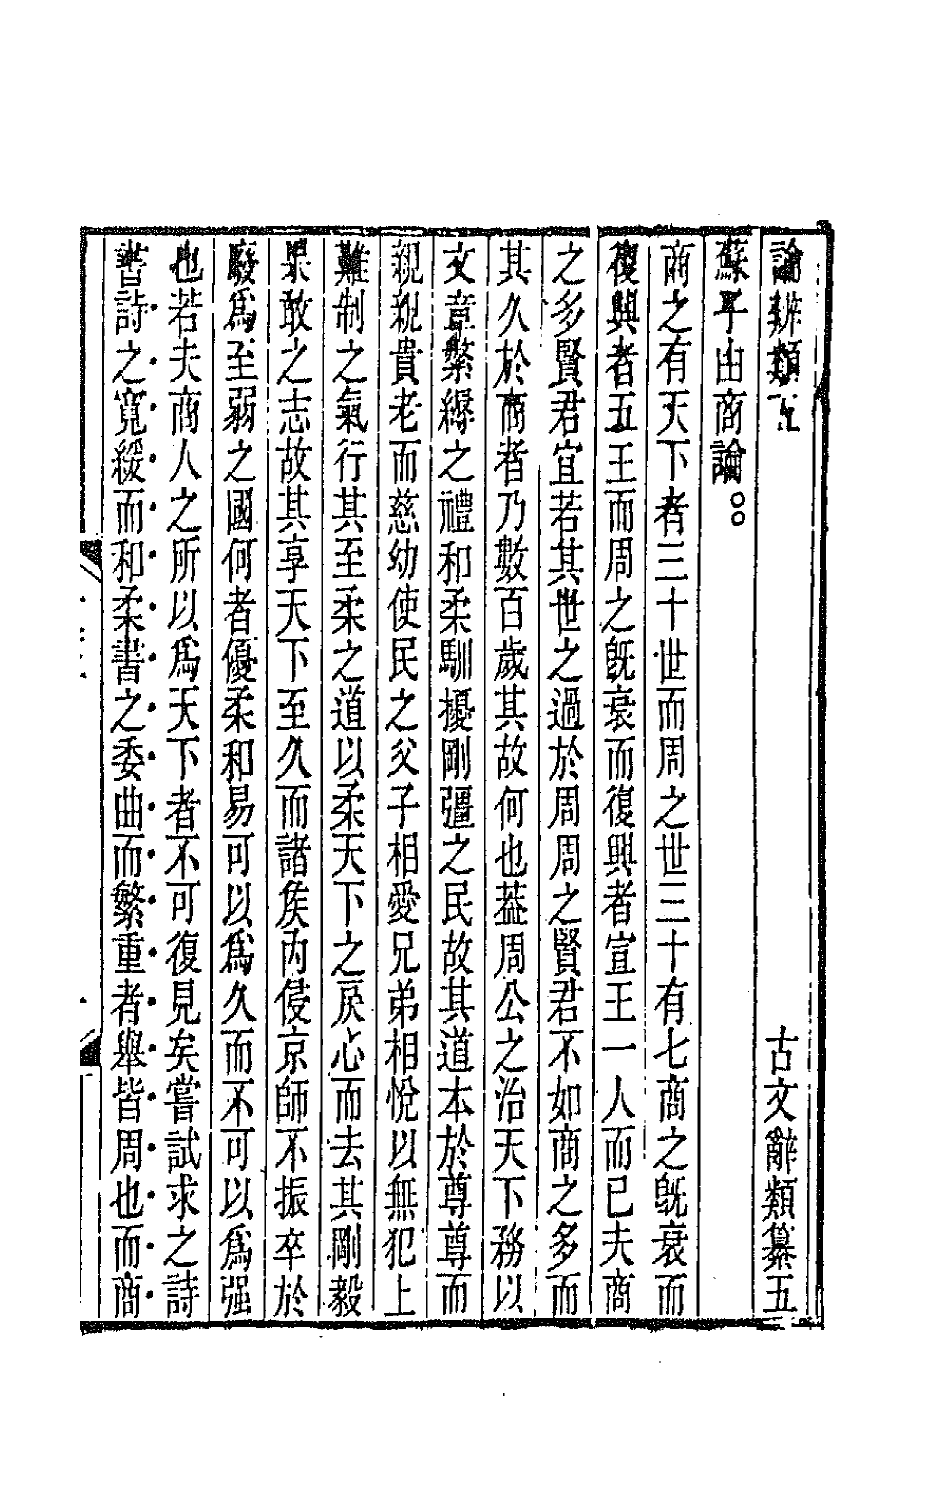 論辨類五 古文辭類纂五
蘇子由商論○○
商之有天下者三十世而周之世三十有七商之旣衰而
復興者五王而周之旣衰而復興者宣王一人而已夫商
之多賢君宜若其世之過於周周之賢君不如商之多而
其久於商者乃數百歲其故何也蓋周公之治天下務以
文章繁縟之禮和柔馴擾剛彊之民故其道本於尊尊而
親親貴老而慈幼使民之父子相愛兄弟相悅以無犯上
難制之氣行其至柔之道以柔天下之戾心而去其剛毅
果敢之志故其享天下至久而諸矦內侵京師不振卒於
廢爲至弱之國何者優柔和易可以爲久而不可以爲强
也若夫商人之所以爲天下者不可復見矣嘗試求之詩
書詩之寬緩而和柔書之委曲而繁重者舉皆周也而商